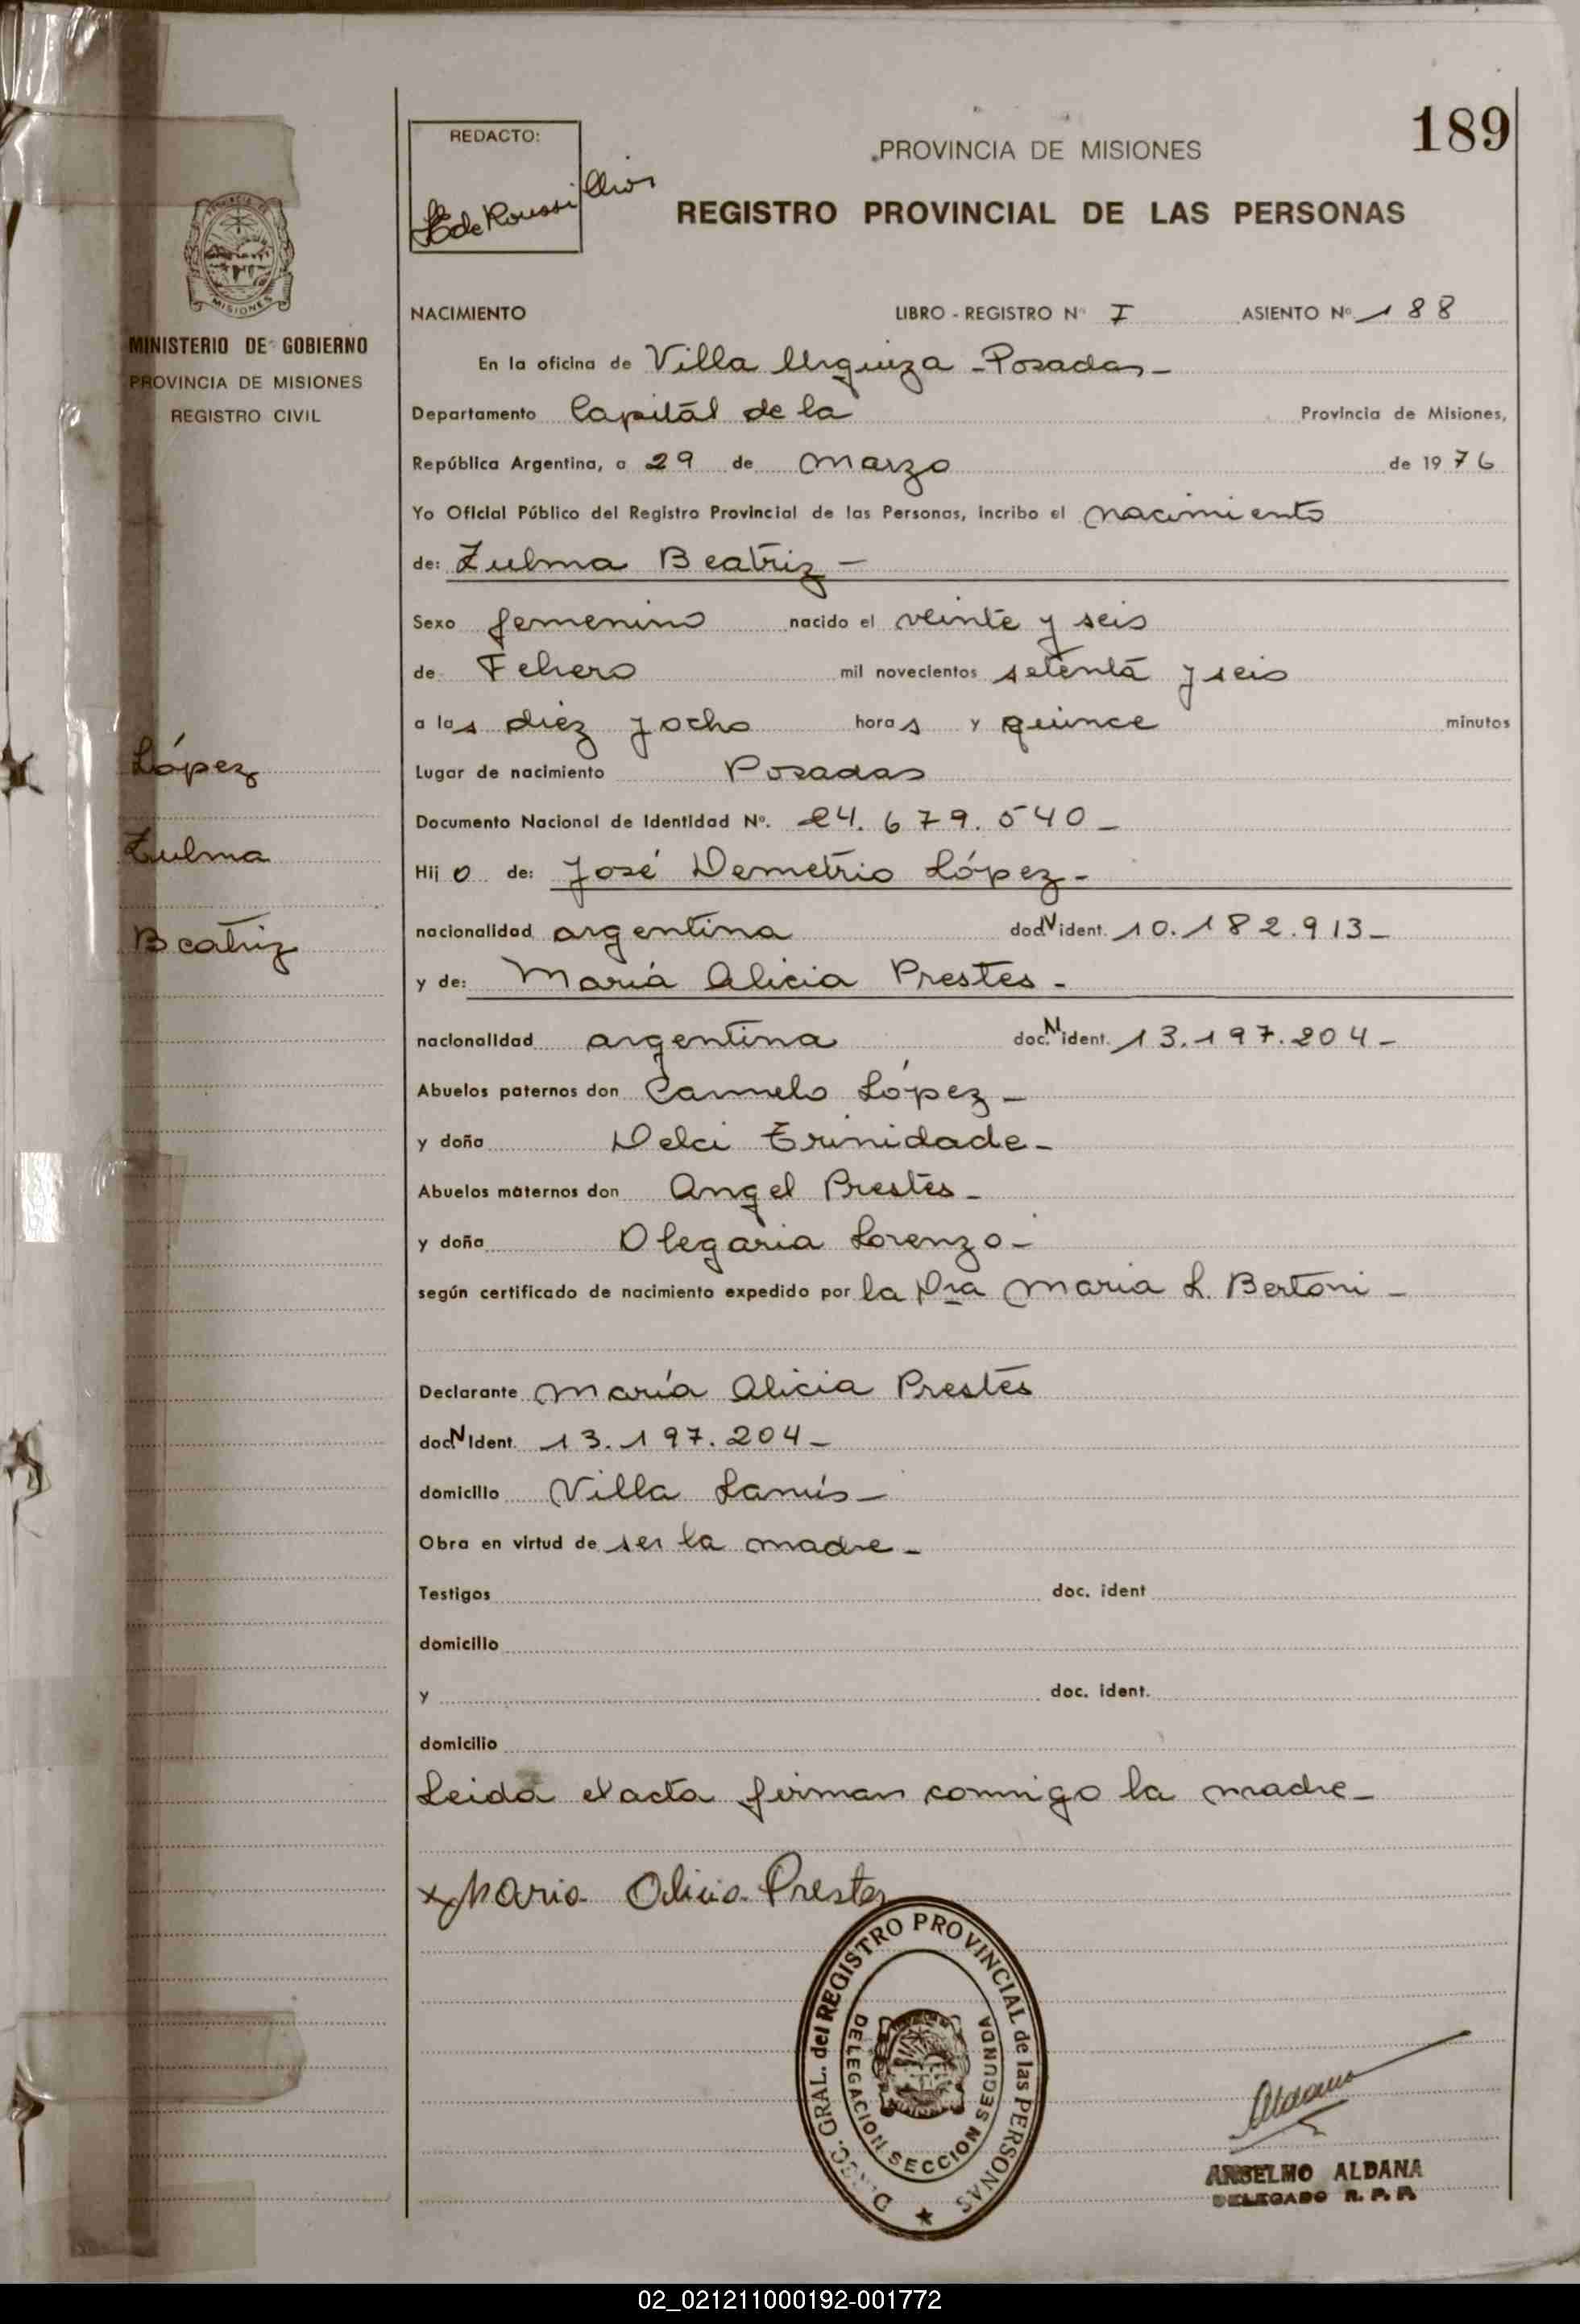 189
REDACTO:
PROVINCIA DE MISIONES
REGISTRO PROVINCIAL DE LAS PERSONAS
PROVINCIA DE MISIONES
MINISTERIO DE GOBIERNO
PROVINCIA DE MISIONES
REGISTRO CIVIL
López
Zulma
Beatriz
NACIMIENTO LIBRO - REGISTRO Nº I ASIENTO Nº 188
En la oficina de Villa Urquiza - Posadas -
Departamento Capitál de la Provincia de Misiones,
República Argentina, a 29 de marzo de 1976
Yo Oficial Público del Registro Provincial de las Personas, incribo el nacimiento
de: Zulma Beatriz -
Sexo femenino nacido el veinte y seis
de Febrero mil novecientos setenta y seis
a las diez y ocho horas y quince minutos
Lugar de nacimiento Posadas
Documento Nacional de Identidad Nº. 24.679.540 -
Hijo de: José Demetrio López -
nacionalidad argentina doc.N ident. 10.182.913 -
y de: María Alicia Prestes -
nacionalidad argentina doc.N ident. 13.197.204 -
Abuelos paternos don Carmelo López -
y doña Delci Trinidade -
Abuelos maternos don Angel Prestes -
y doña Olegaria Lorenzo -
según certificado de nacimiento expedido por la Dra Maria L. Bertoni -
Declarante María Alicia Prestes
doc.N Ident. 13.197.204 -
domicilio Villa Lanús -
Obra en virtud de ser la madre -
Testigos doc. ident
domicilio
y doc. ident.
domicilio
Leida el acta firman conmigo la madre -
x Maria Alicia Prestes
DIREC. GRAL. del REGISTRO PROVINCIAL de las PERSONAS
DELEGACION SECCION SEGUNDA
Aldana
ANSELMO ALDANA
DELEGADO R. P. P.
02_021211000192-001772